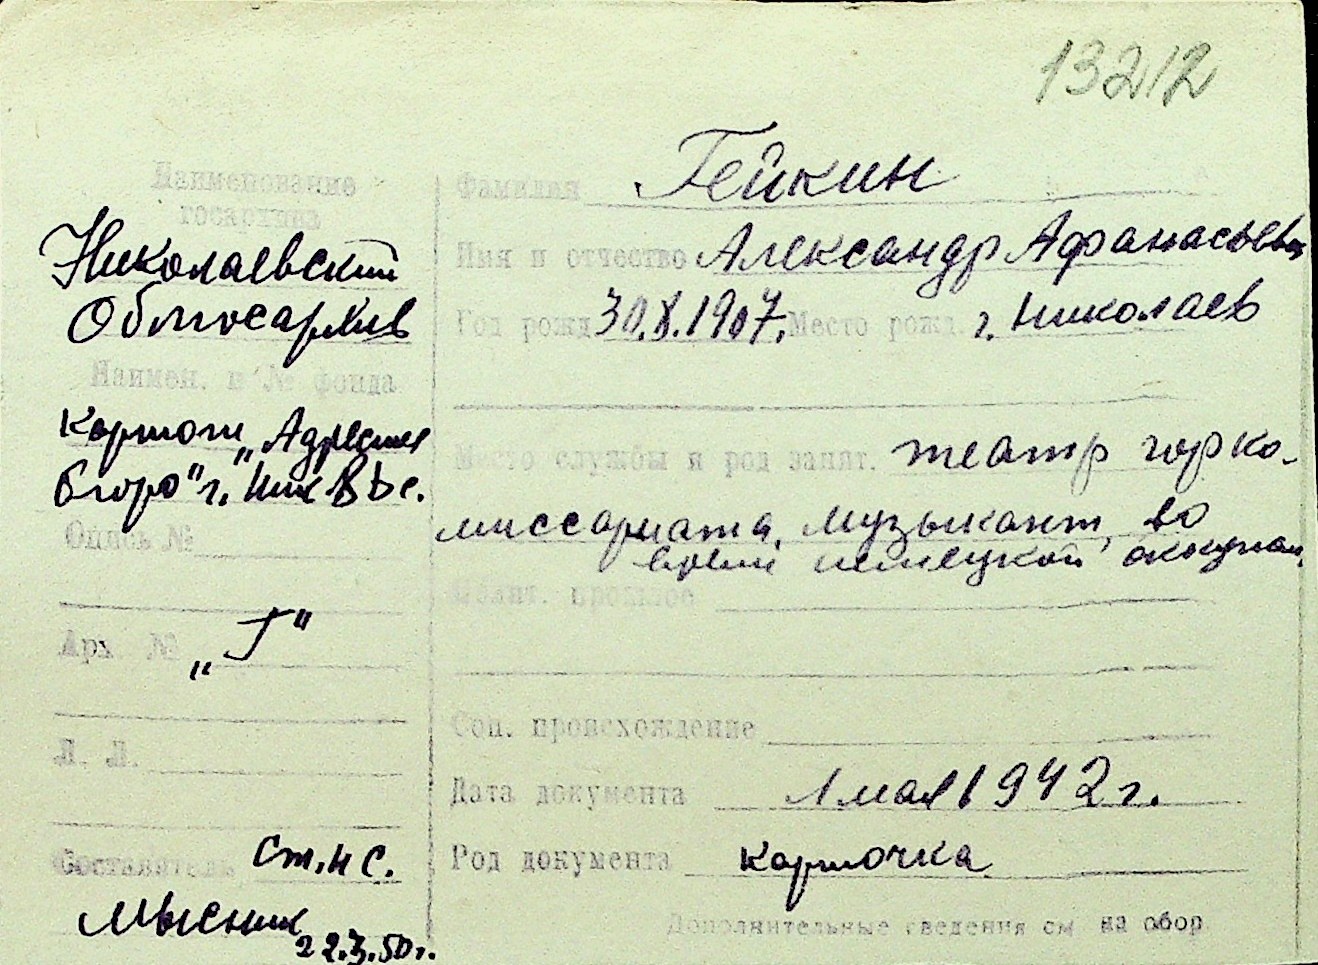 13212
Наименование
госархива
Николаевский
Облгосархив
Наимен. и № фонда
Картот. „Адресное
бюро" г. Ник
Опись №
Арх. №
„Г"
Л. Л.
Составитель ст. н с.
Мысник
22.3.50 г.
Фамилия Гейкин
Имя и отчество Александр Афанасьевич
Год рожд 30.X.1907. Место рожд. г. Николаев
Место службы и род занят. театр горко-
миссариата, музыкант, во
время немецкой оккупац.
Полит. прошлое
Соц. происхождение
Дата документа 1 мая 1942 г.
Род документа карточка
Дополнительные сведения см на обор